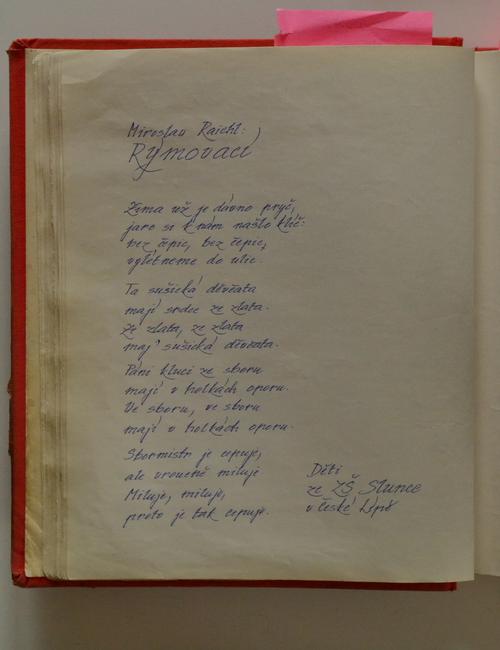 Miroslav Raichl:
Rýmovací
Zima už je dávno pryč,
jaro si k nám našlo klíč:
bez čepic, bez čepic,
vylétneme do ulic.
Ta sušická děvčata
mají srdce ze zlata.
Ze zlata, ze zlata
maj' sušická děvčata.
Páni kluci ze sboru
mají v holkách oporu.
Ve sboru, ve sboru
mají v holkách oporu.
Sbormistr je cepuje,
ale vroucně miluje
Miluje, miluje,
proto je tak cepuje.
Děti
ze ZŠ Slunce
v České Lípě